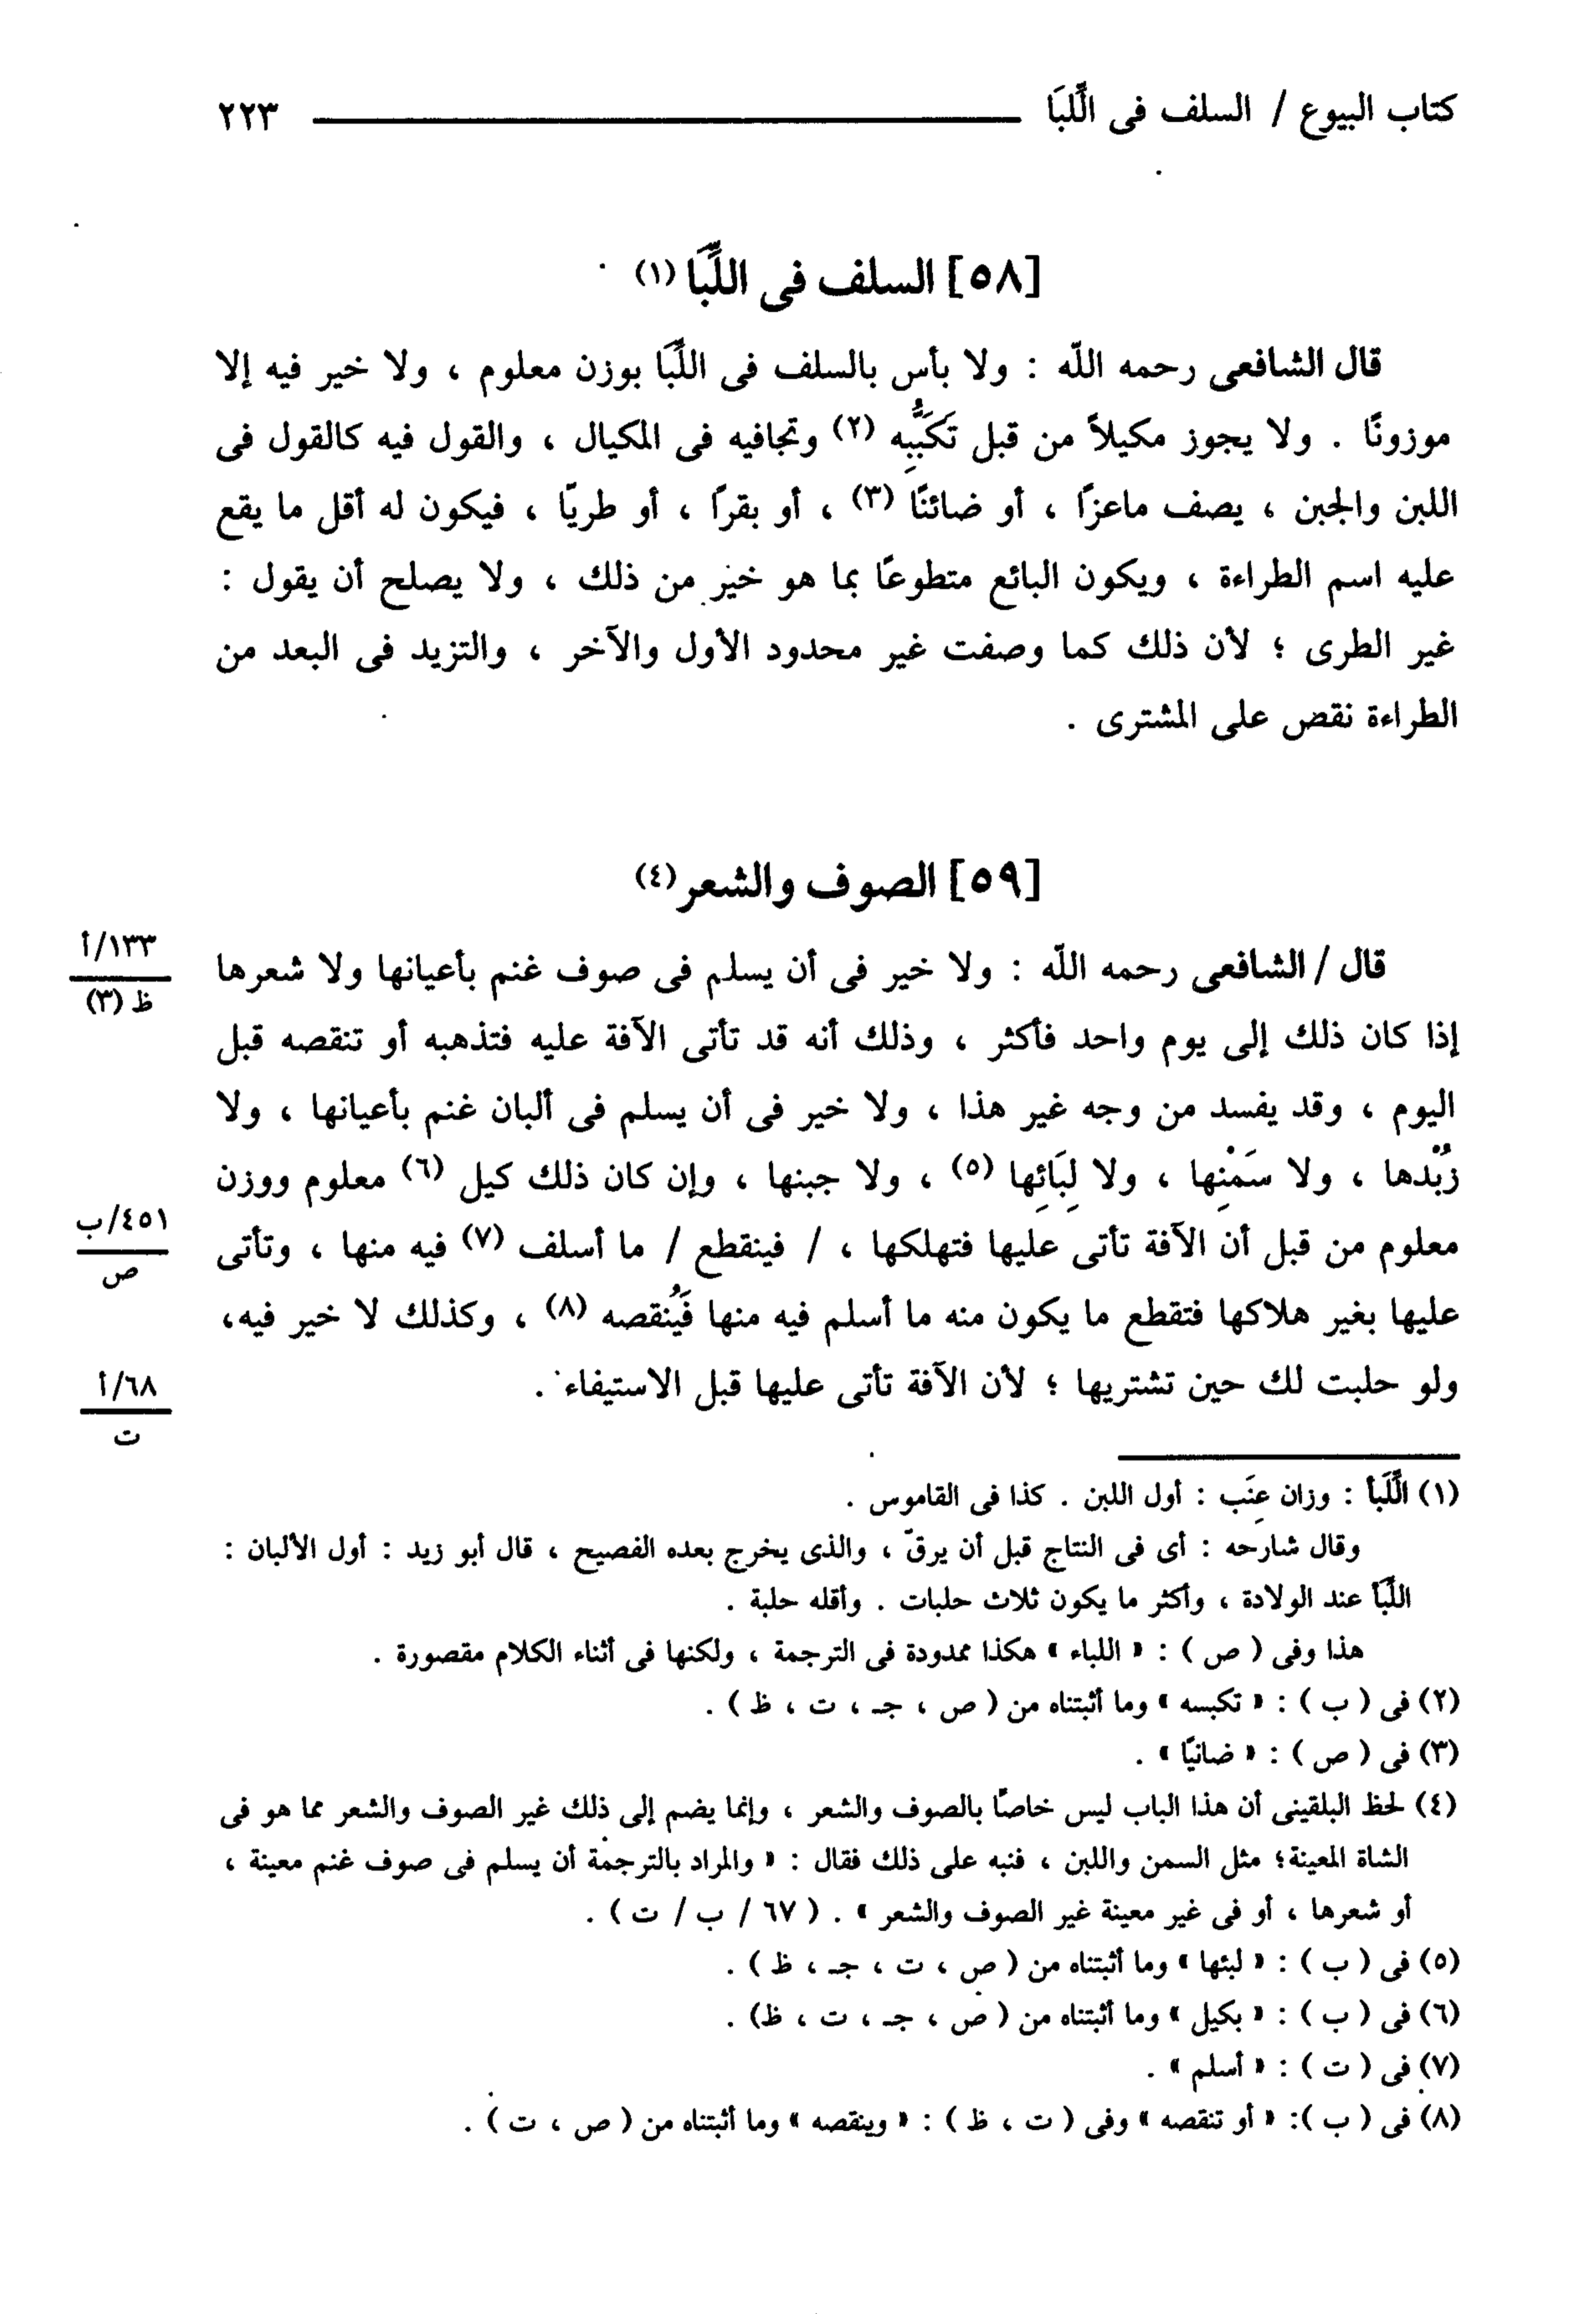 كتاب البيوع / السلف فى اللِّبَا ٢٢٣
[٥٨] السلف فى اللِّبَا (١)
قال الشافعى رحمه اللّه : ولا بأس بالسلف فى اللِّبَا بوزن معلوم ، ولا خير فيه إلا
موزونًا . ولا يجوز مكيلاً من قبل تَكَبُّبِه (٢) وتجافيه فى المكيال ، والقول فيه كالقول فى
اللبن والجبن ، يصف ماعزًا ، أو ضائنًا (٣) ، أو بقرًا ، أو طريًا ، فيكون له أقل ما يقع
عليه اسم الطراءة ، ويكون البائع متطوعًا بما هو خير من ذلك ، ولا يصلح أن يقول :
غير الطرى ؛ لأن ذلك كما وصفت غير محدود الأول والآخر ، والتزيد فى البعد من
الطراءة نقص على المشترى .
[٥٩] الصوف والشعر (٤)
قال / الشافعى رحمه اللّه : ولا خير فى أن يسلم فى صوف غنم بأعيانها ولا شعرها
١٣٣/أ
ظ (٣)
إذا كان ذلك إلى يوم واحد فأكثر ، وذلك أنه قد تأتى الآفة عليه فتذهبه أو تنقصه قبل
اليوم ، وقد يفسد من وجه غير هذا ، ولا خير فى أن يسلم فى ألبان غنم بأعيانها ، ولا
زُبْدها ، ولا سَمْنِها ، ولا لِبَائِها (٥) ، ولا جبنها ، وإن كان ذلك كيل (٦) معلوم ووزن
معلوم من قبل أن الآفة تأتى عليها فتهلكها ، / فينقطع / ما أسلف (٧) فيه منها ، وتأتى
٤٥١/ب
ص
عليها بغير هلاكها فتقطع ما يكون منه ما أسلم فيه منها فَيُنقصه (٨) ، وكذلك لا خير فيه،
ولو حلبت لك حين تشتريها ؛ لأن الآفة تأتى عليها قبل الاستيفاء .
٦٨/أ
ت
(١) اللِّبَأ : وزان عِنَب : أول اللبن . كذا فى القاموس .
وقال شارحه : أى فى النتاج قبل أن يرقّ ، والذى يخرج بعده الفصيح ، قال أبو زيد : أول الألبان :
اللِّبَأ عند الولادة ، وأكثر ما يكون ثلاث حلبات . وأقله حلبة .
هذا وفى ( ص ) : « اللباء » هكذا ممدودة فى الترجمة ، ولكنها فى أثناء الكلام مقصورة .
(٢) فى ( ب ) : « تكبسه » وما أثبتناه من ( ص ، جـ ، ت ، ظ ) .
(٣) فى ( ص ) : « ضانيًا » .
(٤) لحظ البلقينى أن هذا الباب ليس خاصًا بالصوف والشعر ، وإنما يضم إلى ذلك غير الصوف والشعر مما هو فى
الشاة المعينة؛ مثل السمن واللبن ، فنبه على ذلك فقال : « والمراد بالترجمة أن يسلم فى صوف غنم معينة ،
أو شعرها ، أو فى غير معينة غير الصوف والشعر » . ( ٦٧ / ب / ت ) .
(٥) فى ( ب ) : « لبئها » وما أثبتناه من ( ص ، ت ، جـ ، ظ ) .
(٦) فى ( ب ) : « بكيل » وما أثبتناه من ( ص ، جـ ، ت ، ظ) .
(٧) فى ( ت ) : « أسلم » .
(٨) فى ( ب ): « أو تنقصه » وفى ( ت ، ظ ) : « وينقصه » وما أثبتناه من ( ص ، ت ) .